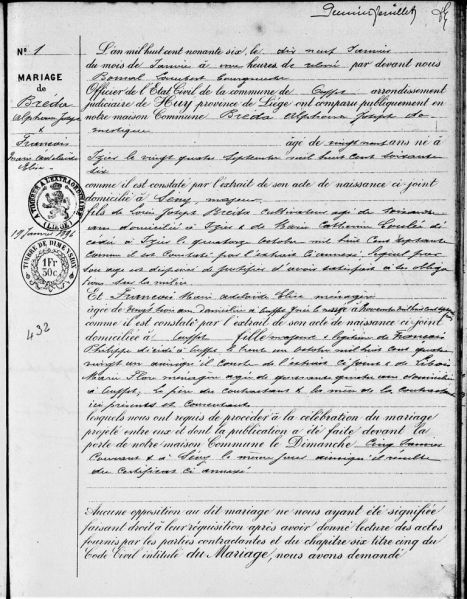 Premier feuillet
N° 1
MARIAGE
de
Breda
Alphonse Joseph
&
Francois
Marie Adelaïde
Elise
19 Janvier 1896
A TIMBRER A L'EXTRAORDINAIRE
(LIEGE)
TIMBRE DE DIMENSION
1 Fr
50c.
432
L'an mil huit cent nonante six, le dix neuf Janvier
du mois de Janvier à onze heures de relevée par devant nous
Bonsal
Officier de l'Etat Civil de la commune de Ouffet arrondissement
judiciaire de Huy province de Liége ont comparu publiquement en
notre maison Commune Breda Alphonse Joseph do-
mestique
âgé de vingt neuf ans né à
le vingt quatre Septembre mil huit cent soixante
six
comme il est constaté par l'extrait de son acte de naissance ci-joint
domicilié à Seny, majeur
fils de Louis Joseph Breda cultivateur âgé de soixante
ans domicilié à & de Marie Catherine
décédée à le quatorze octobre mil huit cent septante
comme il est constaté par l'extrait ci annexé. Lequel pour
son âge est dispensé de justifier d'avoir satisfait à ses obliga
tions sur la milice
Et Francois Marie Adelaïde Elise ménagère
âgée de vingt trois ans domiciliée à Ouffet née le
comme il est constaté par l'extrait de son acte de naissance ci-joint
domiciliée à Ouffet fille majeure & légitime de Francois
Philippe décédé à Ouffet le trente un octobre mil huit cent quatre
vingt un ainsi qu'il conste de l'extrait ci joint & de
Marie ménagère âgée de quarante quatre ans domiciliée
à Ouffet, le père du contractant & la mère de la contractante
ici présents et consentants
lesquels nous ont requis de procéder à la célébration du mariage
projeté entre eux et dont la publication a été faite devant la
porte de notre maison Commune le Dimanche Cinq Janvier
Courant & à Seny le même jour ainsi qu'il résulte
du certificat ci annexé
Aucune opposition au dit mariage ne nous ayant été signifiée
faisant droit à leur réquisition après avoir donné lecture des actes
fournis par les parties contractantes et du chapitre six titre cinq du
Code Civil intitulé du Mariage, nous avons demandé